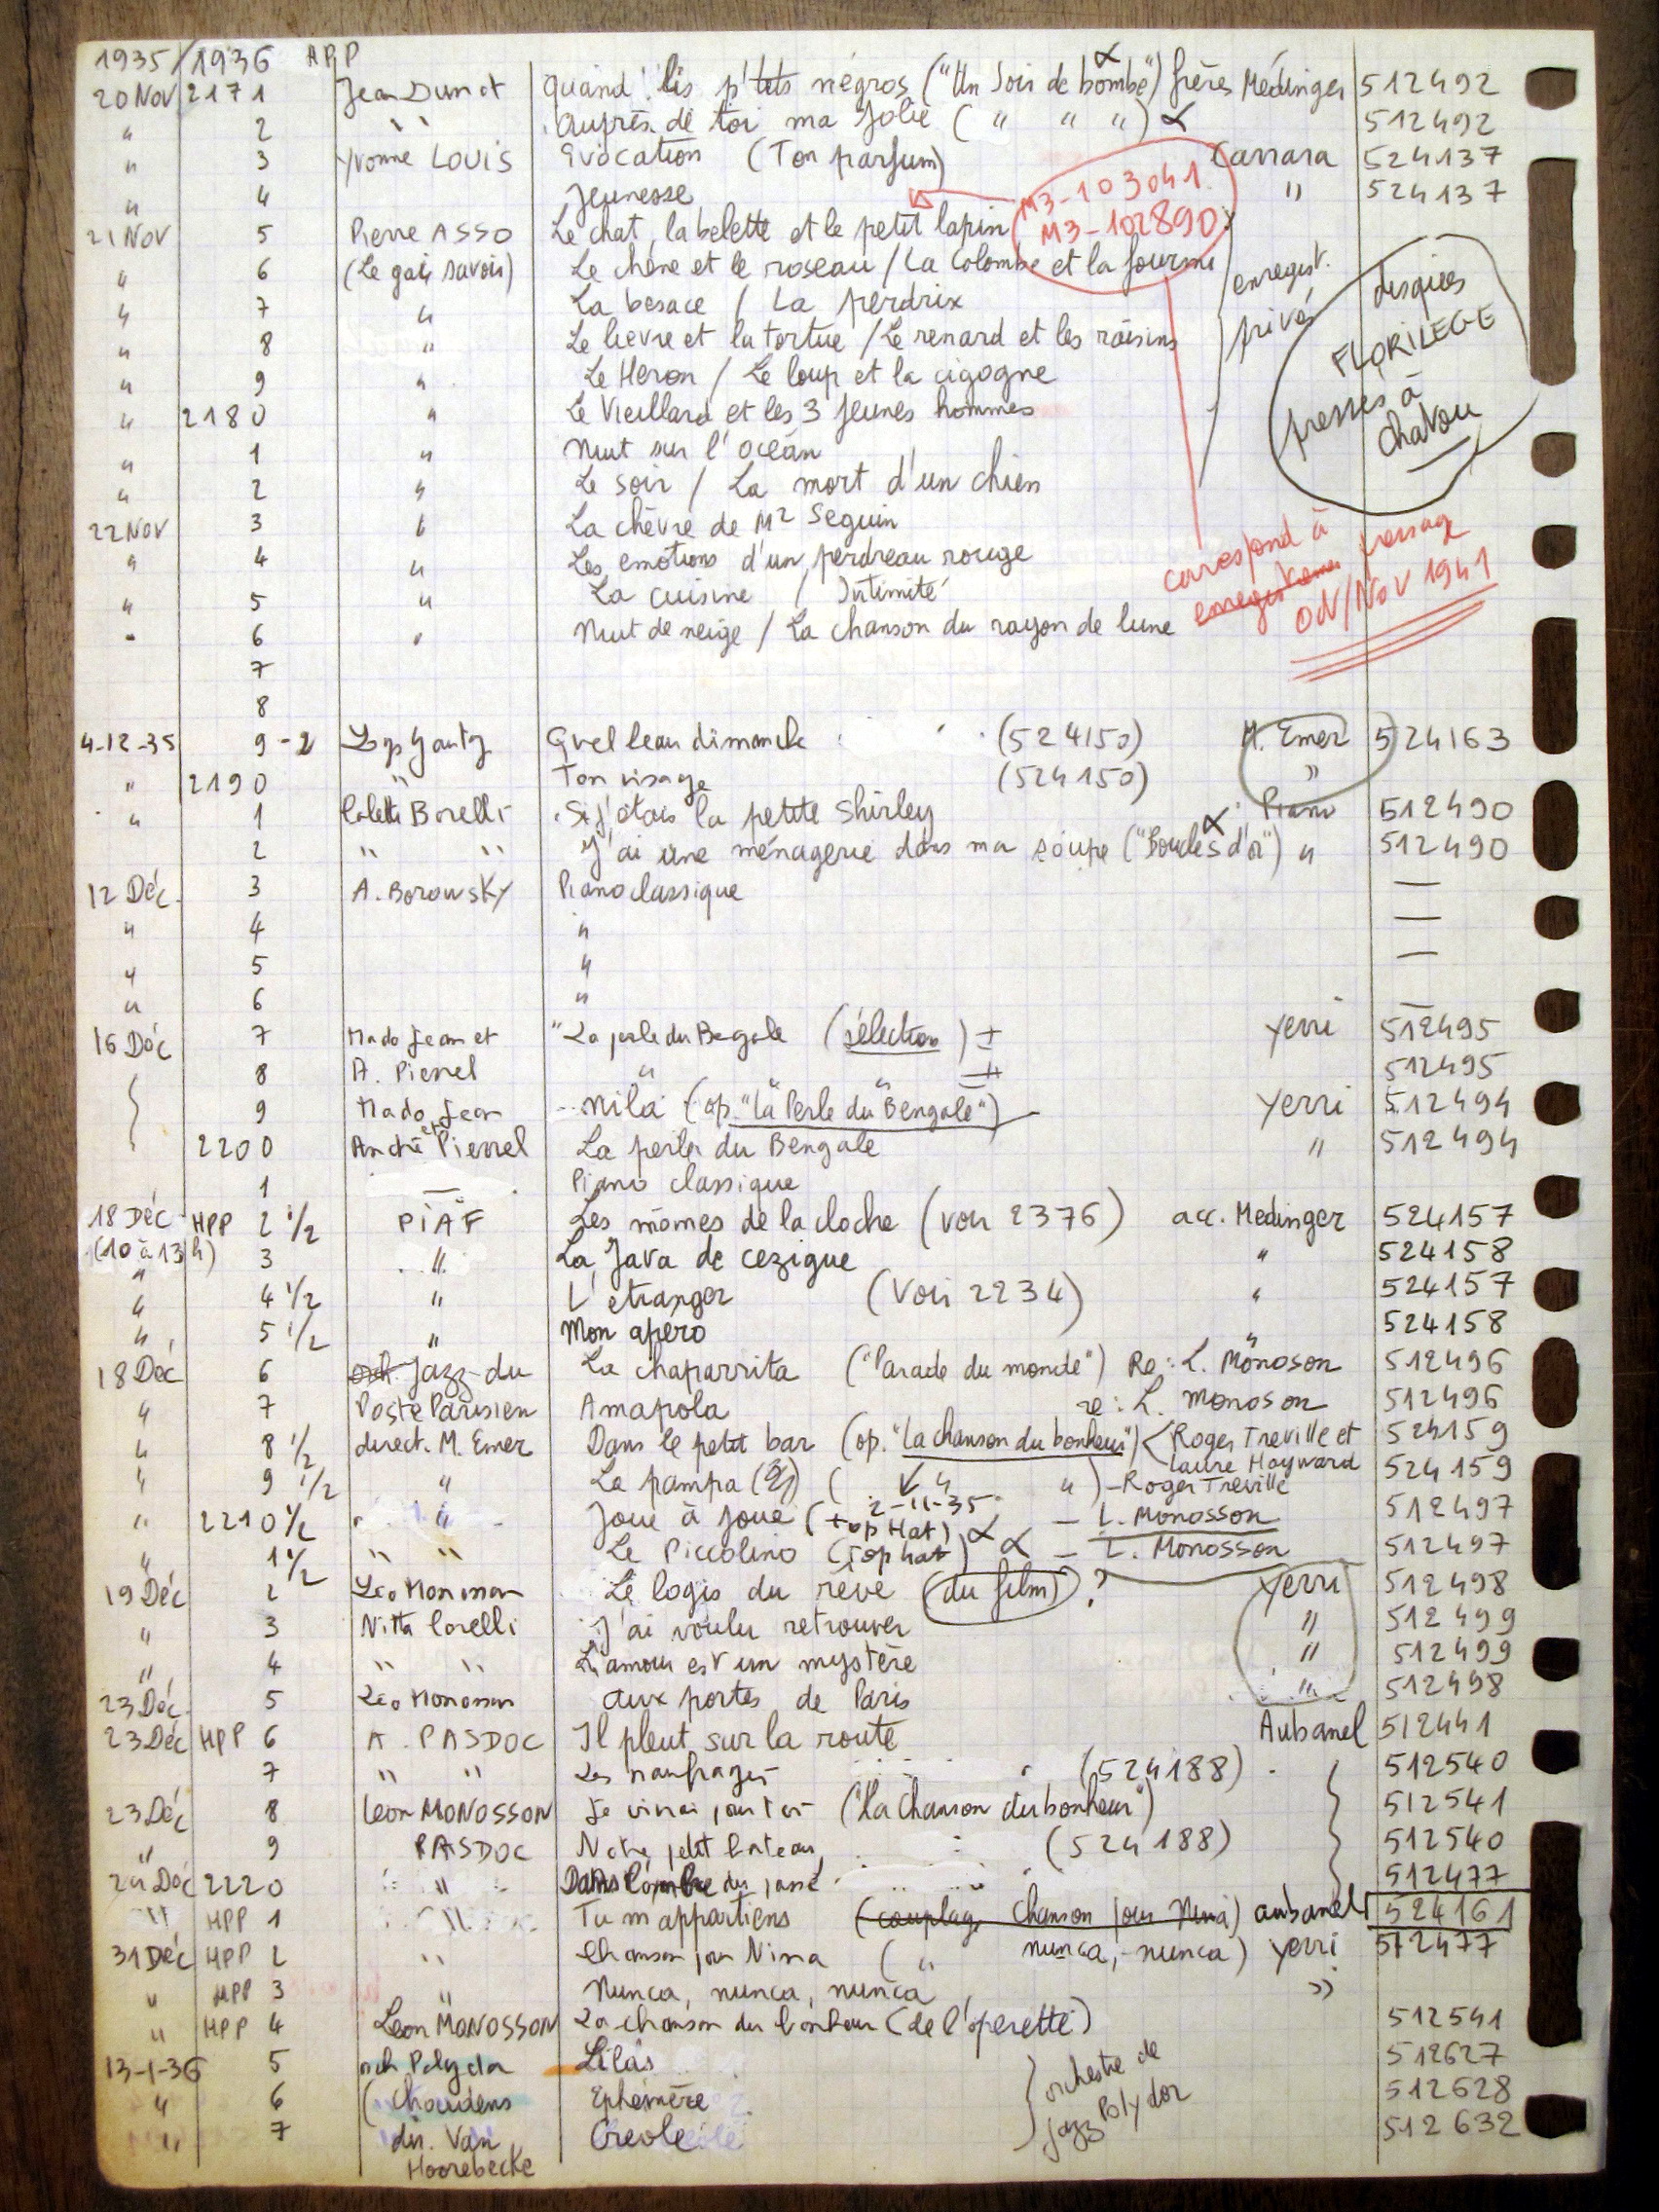 1935/1936 HPP
20 NOV 2171 Jean Dunot Quand les p'tits négros ("Un Soir de bombe") frères Médinger 512492
" 2 " Auprès de toi ma Jolie ( " " " ) 512492
" 3 Yvonne LOUIS Evocation (Ton parfum) Carrara 524137
" 4 Jeunesse " 524137
M3-103041
M3-102890
21 NOV 5 Pierre ASSO Le chat, la belette et le petit lapin
" 6 (Le gai savoir) Le chêne et le roseau / La Colombe et la fourmi
enregist. privé
" 7 " La besace / La perdrix
" 8 " Le lievre et la tortue / Le renard et les raisins
" 9 " Le Heron / Le loup et la cigogne
" 2180 " Le Vieillard et les 3 jeunes hommes
disques
FLORILEGE
pressés à
Chatou
" 1 " Nuit sur l'océan
" 2 " Le soir / La mort d'un chien
22 NOV 3 " La chèvre de Mr Seguin
" 4 " Les emotions d'un perdreau rouge
" 5 " La cuisine / Intimité
" 6 " Nuit de neige / La chanson du rayon de lune
correspond à
pressage
Oct/Nov 1941
7
8
4-12-35 9-2 Lys Gauty Quel beau dimanche (524150) M. Emer 524163
" 2190 " Ton visage (524150) "
" 1 Colette Borelli Si j'étais la petite Shirley Piano 512490
2 " " J'ai une ménagerie dans ma soupe ("Boucles d'or") " 512490
12 Déc. 3 A. Borowsky Piano classique —
" 4 " —
" 5 " —
" 6 " —
16 Déc 7 Mado Jean et "La perle du Bengale (sélection) Yerri 512495
8 A. Pierrel " 512495
9 Mado Jean Nila (op. "La Perle du Bengale") Yerri 512494
2200 et André Pierrel La perle du Bengale " 512494
1 — Piano classique
18 Déc HPP 2 1/2 PIAF Les mômes de la cloche (voir 2376) acc. Medinger 524157
(10 à 13 h) 3 " La Java de cezigue " 524158
" 4 1/2 " L'etranger (Voir 2234) " 524157
" 5 1/2 " Mon apero " 524158
18 Déc 6 Jazz du La chaparrita ("Parade du monde") Re: L. Monoson 512496
" 7 Poste Parisien Amapola re: L. Monoson 512496
" 8 1/2 direct. M. Emer Dans le petit bar (op. "La chanson du bonheur") Roger Treville et Laure Hayward 524159
" 9 1/2 " La pampa ( " " ) - Roger Treville 524159
2-11-35
" 2210 1/2 " Joue à Joue (top Hat) - L. Monosson 512497
" 1 1/2 " " Le Piccolino (Top hat) - L. Monosson 512497
19 Déc 2 Léo Monosson Le logis du rêve (du film) ? Yerri 512498
" 3 Nitta Corelli J'ai voulu retrouver " 512499
" 4 " " L'amour est un mystère " 512499
23 Déc 5 Léo Monosson Aux portes de Paris " 512498
23 Déc HPP 6 A. PASDOC Il pleut sur la route Aubanel 512441
7 " " Les naufragés (524188) 512540
23 Déc 8 Léon MONOSSON Je vivrai pour toi ("La Chanson du bonheur") 512541
" 9 PASDOC Notre petit bateau (524188) 512540
24 Déc 2220 " Dans l'ombre du passé 512477
" HPP 1 " Tu m'appartiens (couplage Chanson pour Nina) aubanel 524161
31 Déc HPP 2 " Chanson pour Nina ( " nunca, nunca) Yerri 512477
" HPP 3 " Nunca, nunca, nunca "
" HPP 4 Léon MONOSSON La chanson du bonheur (de l'opérette) 512541
13-1-36 5 orch Polydor Lilas 512627
" 6 (Choudens Ephémère 512628
" 7 dir. Van Hoorebecke Creole 512632
orchestre de
jazz Polydor